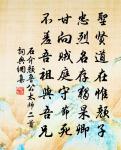 聖賢道在惟顏子
忠烈名存獨杲卿
甘向賊庭守節死
不羞吾祖與吾兄
石介顏魯公太師二首
詞典網集